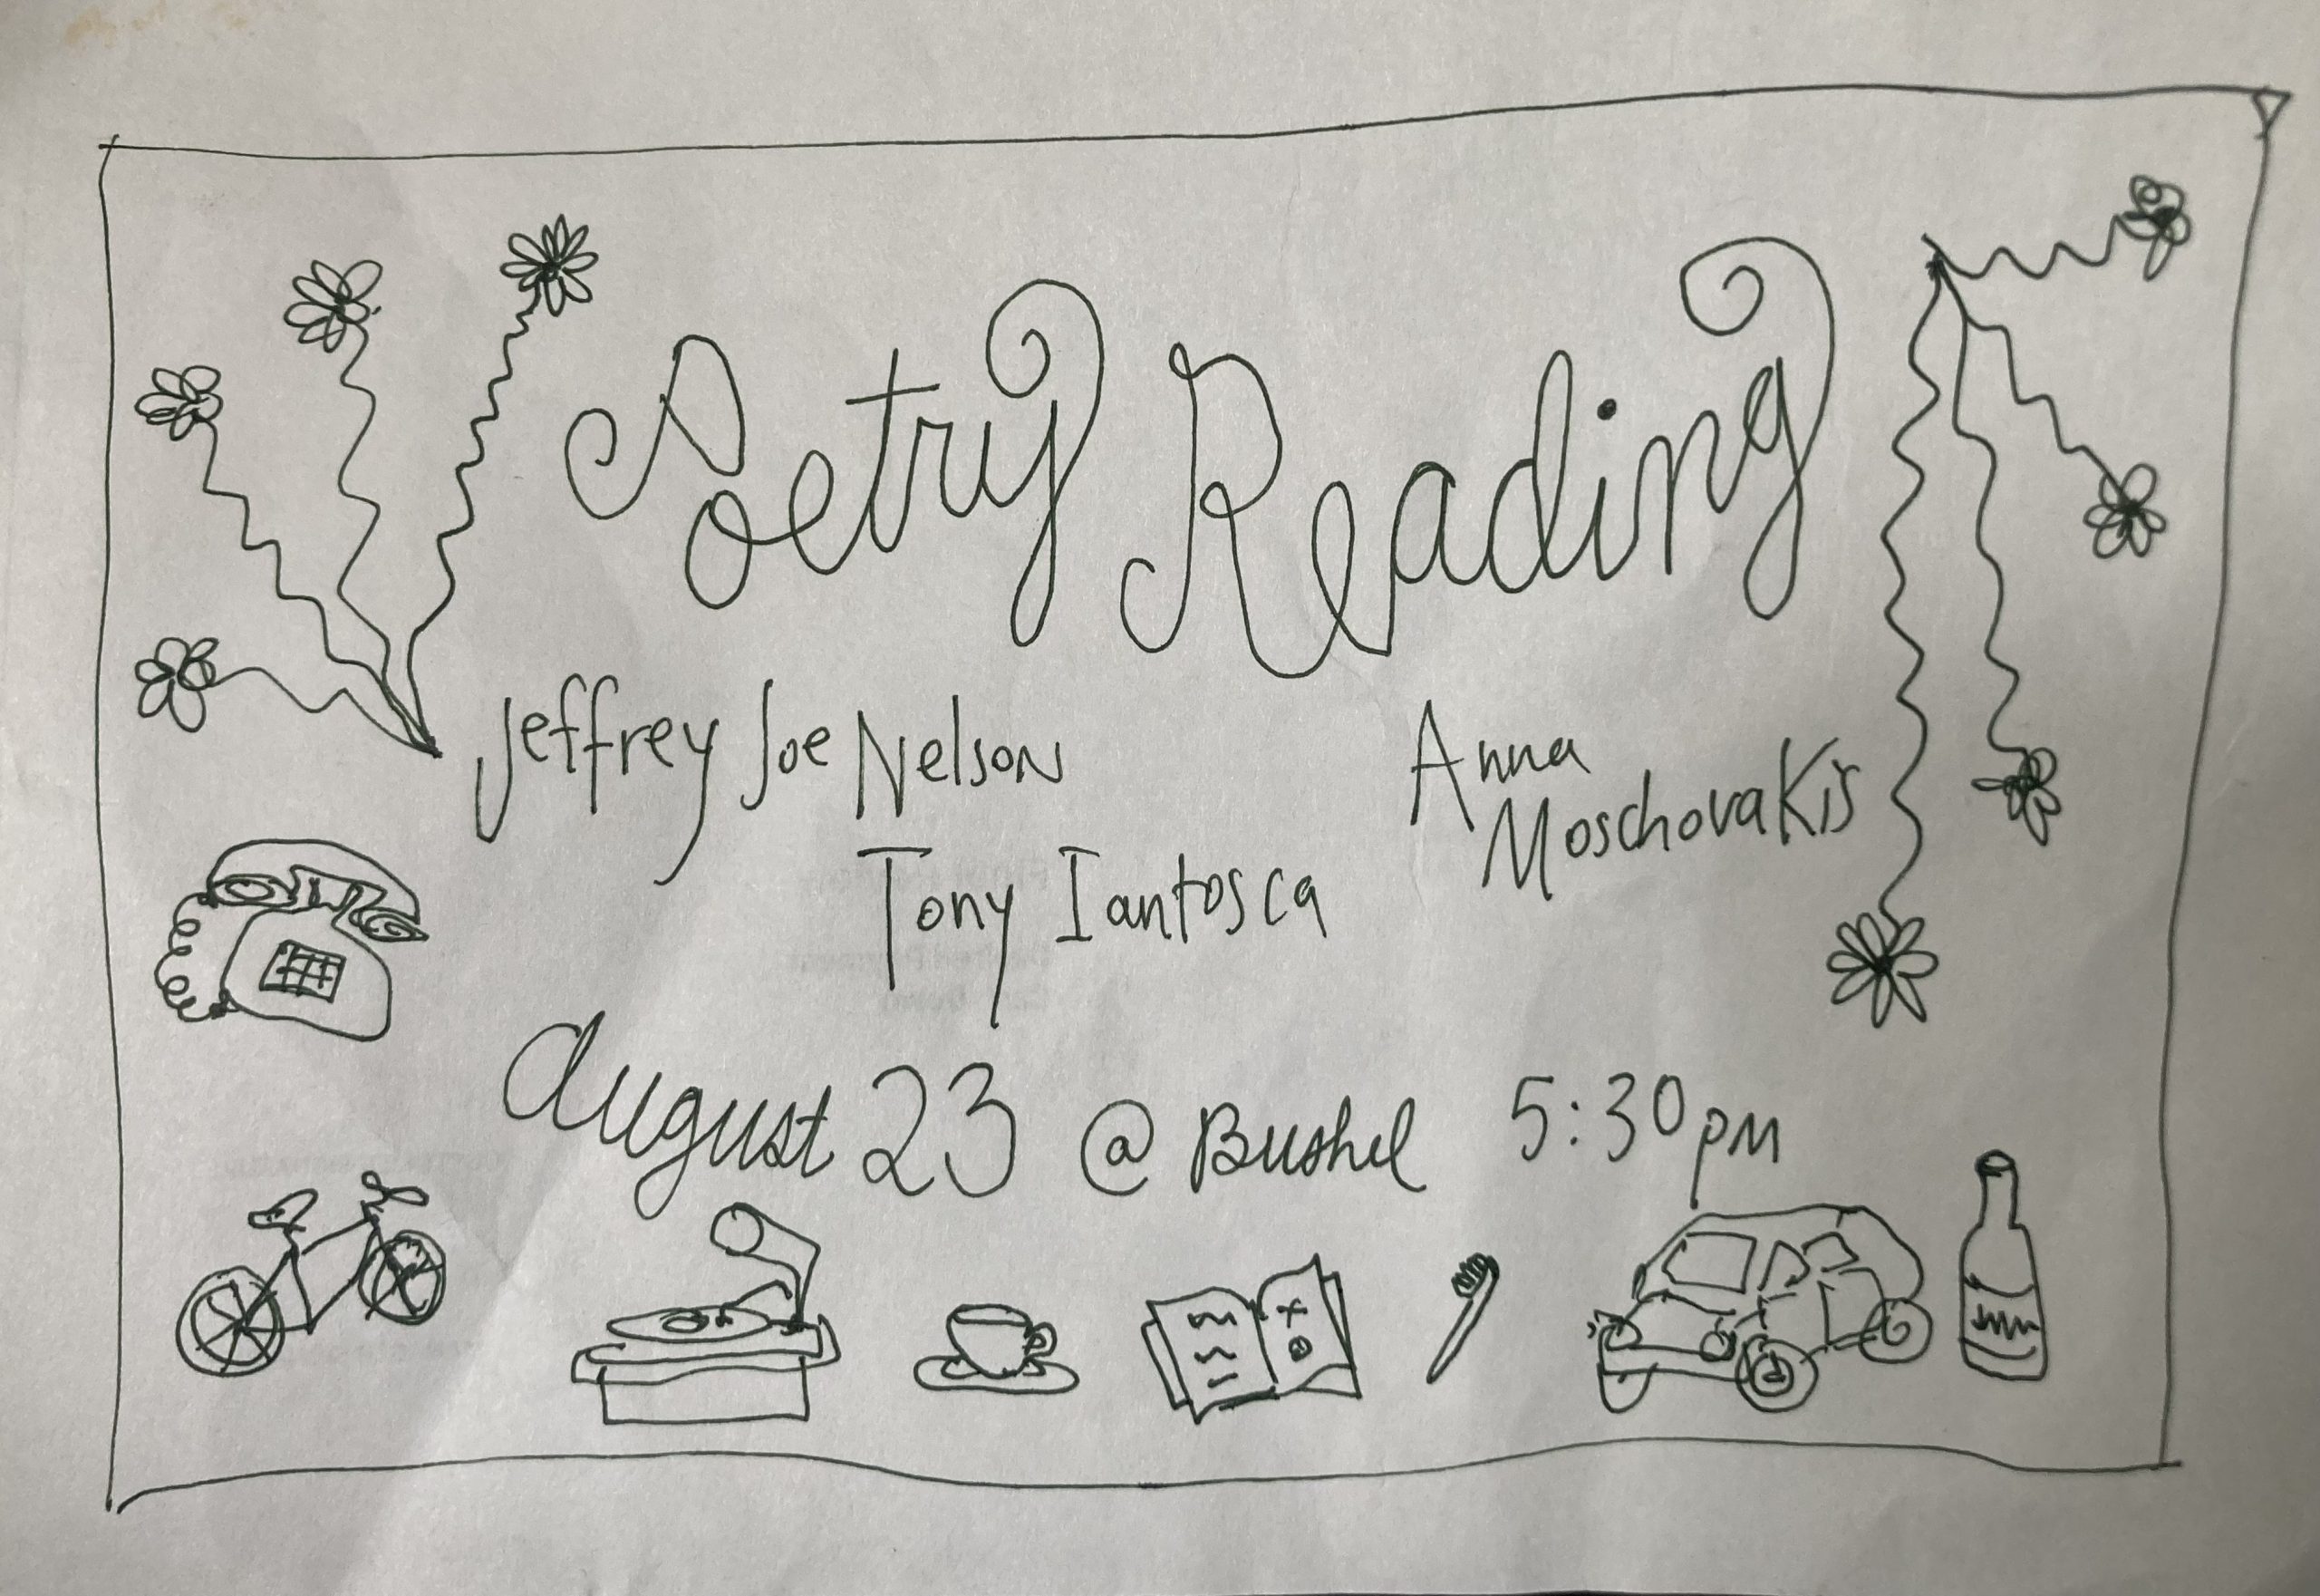 Poetry Reading
Jeffrey Joe Nelson
Anna
Moschovakis
Tony Iantosca
August 23 @ Bushel 5:30pm